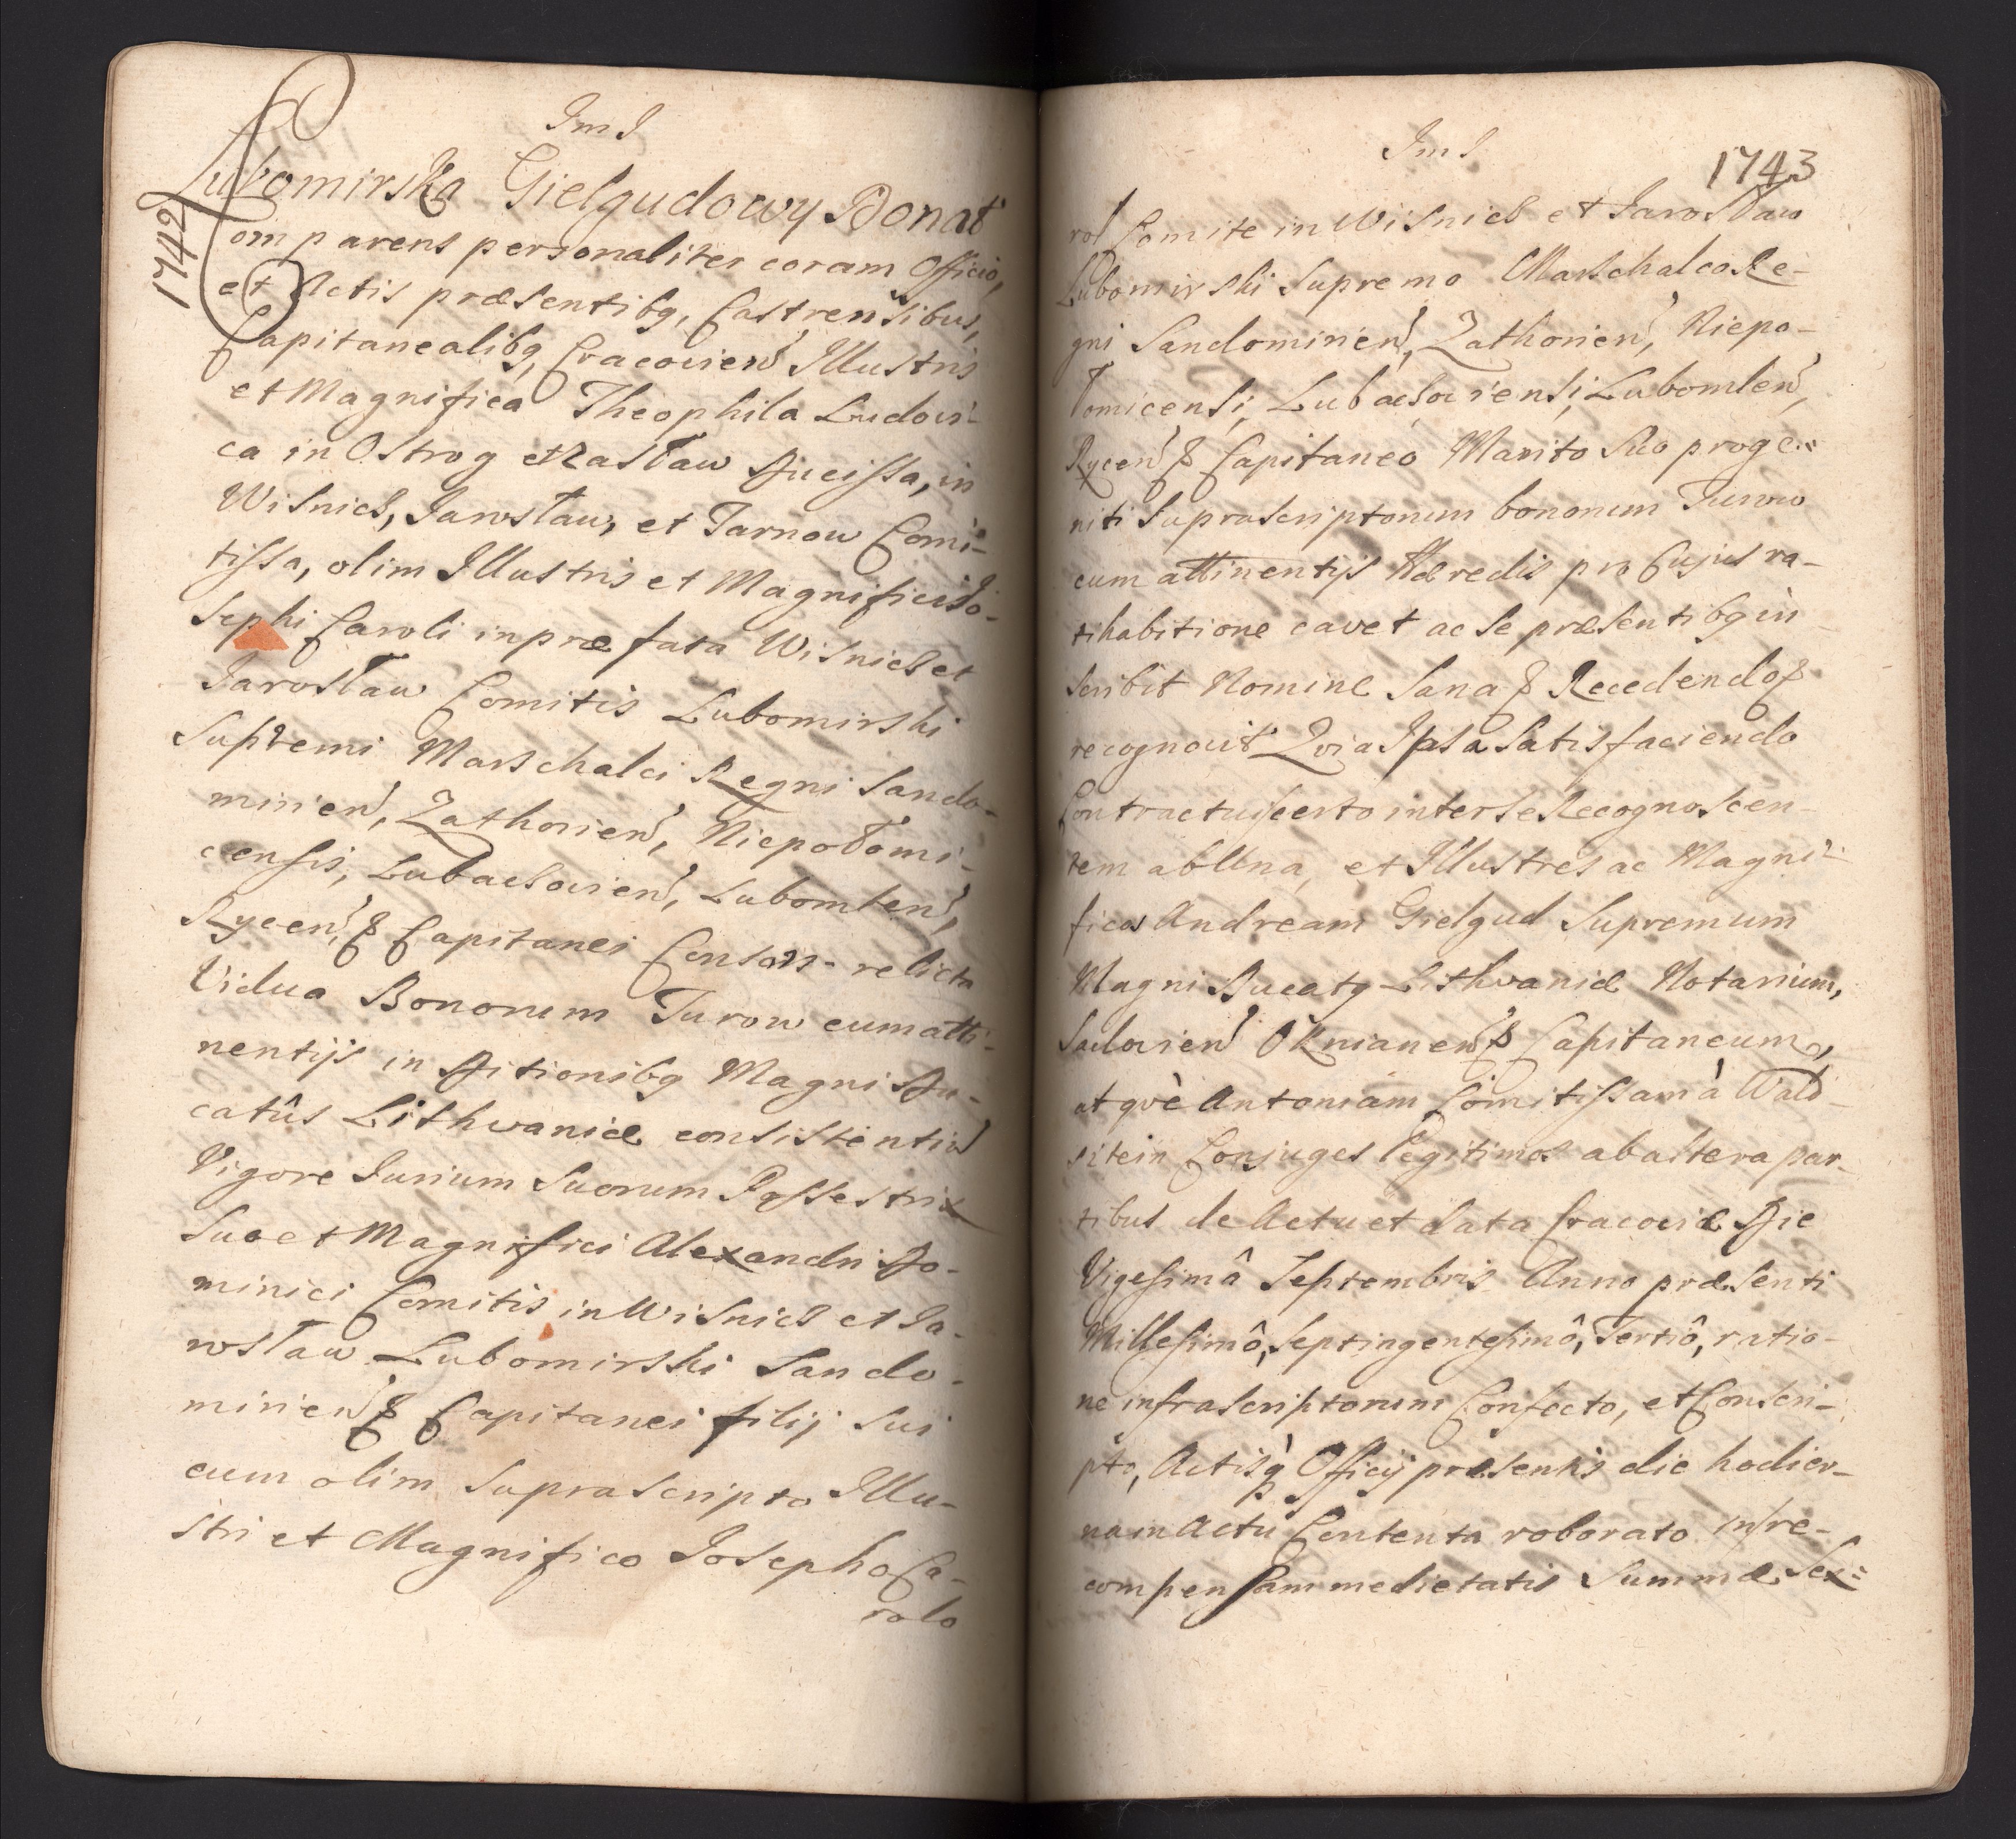 Jm J
1742
Lubomirska Gielgudowy Donat
Comparens personaliter coram Officio,
et Actis præsentibq, Castrensibus,
Capitanealibq, Cracovien Illustris
et Magnifica Theophila Ludovi-
ca in Ostrog et Zasław Ducissa, in
Wisnicz, Jarosław, et Tarnow Comi-
tissa, olim Illustris et Magnifici Jo-
sephi Caroli in præfata Wisnicz et
Jarosław Comitis Lubomirski
Supremi Marschalci Regni Sando-
mirien, Zathorien, Niepołomi-
censis, Lubaczovien, Lubomlen,
Rycen, & Capitanei Consors relicta
Vidua Bonorum Turow cum atti-
nentijs in Ditionibq Magni Du-
catûs Lithvaniæ consistentiu
Vigore Jurium Suorum Possestrix
Suo et Magnifici Alexandri Do-
minici Comitis in Wisnicz et Ja-
rosław Lubomirski Sando-
mirien & Capitanei filij Sui
cum olim Suprascripto Illu-
stri et Magnifico Josepho Ca-
rolo
Jm J
1743
rol Comite in Wisnicz et Jarosław
Lubomirski Supremo Marschalco Re-
gni Sandomirien, Zathorien, Niepo-
łomicensi, Lubaczoviensi, Lubomlen,
Rycen & Capitaneo Marito Suo proge-
niti Suprascriptorum bonorum Turow
cum attinentijs Hæredis pro Cujus ra-
tihabitione cavet ac se præsentibq in-
scribit Nomine Sana & Recedendo &
recognovit Qvia Ipsa Satisfaciendo
Contractui certo inter se Recognoscen-
tem ab Una, et Illustres ac Magni-
ficos Andream Gielgud Supremum
Magni Ducatq Lithvaniæ Notarium,
Oknianen & Capitaneum,
atqvè Antoniam Comitissam à Wald-
stein Conjuges legitimos ab altera par-
tibus de Actu et data Cracoviæ Die
Vigesimâ Septembris Anno præsenti
Millesimô, Septingentesimô, Tertiô, ratio-
ne infrascriptorum Confecto, et Conscri-
pto, Actisq Officij præsentis die hodier-
na in Actu Contenta roborato in re-
compensam medietatis Summæ Sex-